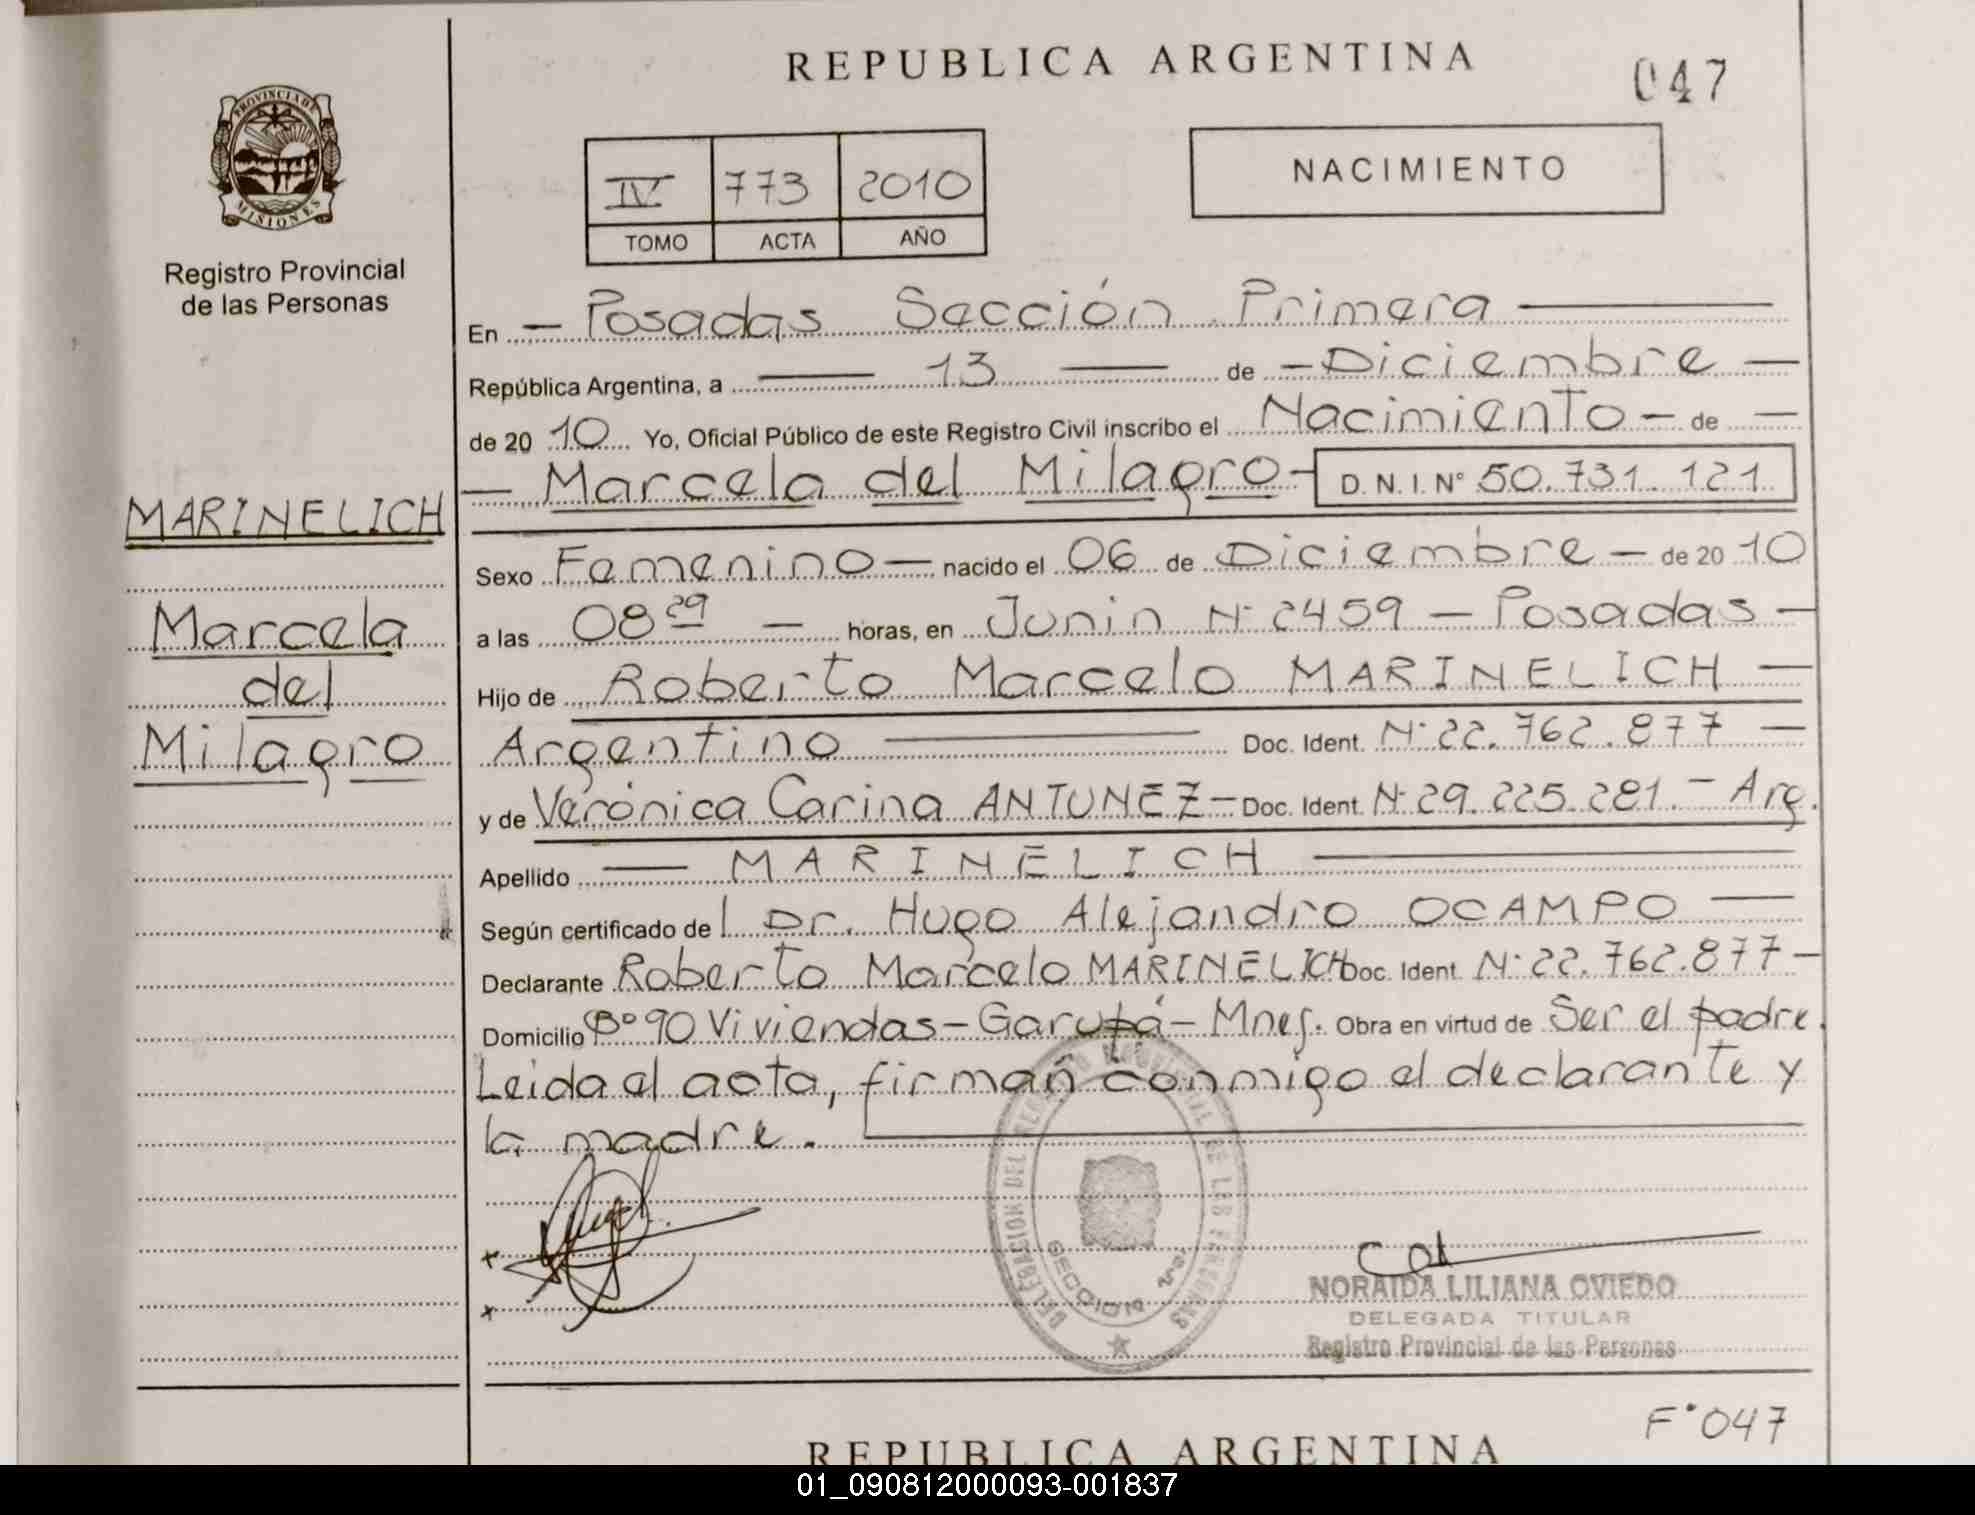 REPUBLICA ARGENTINA
047
PROVINCIA DE
MISIONES
Registro Provincial
de las Personas
IV 773 2010
TOMO ACTA AÑO
NACIMIENTO
En - Posadas Sección Primera
República Argentina, a 13 de - Diciembre -
de 20 10 Yo, Oficial Público de este Registro Civil inscribo el Nacimiento - de -
- Marcela del Milagro - D.N.I. N° 50.731.121
MARINELICH
Marcela
del
Milagro
Sexo Femenino - nacido el 06 de Diciembre - de 20 10
a las 08 29 - horas, en Junin N° 2459 - Posadas -
Hijo de Roberto Marcelo MARINELICH -
Argentino Doc. Ident. N° 22.762.877 -
y de Verónica Carina ANTUNEZ - Doc. Ident. N° 29.225.281. - Arg.
Apellido MARINELICH
Según certificado de l Dr. Hugo Alejandro OCAMPO -
Declarante Roberto Marcelo MARINELICH Doc. Ident. N° 22.762.877 -
Domicilio B° 90 Viviendas - Garupá - Mnes. Obra en virtud de Ser el padre.
Leida el acta, firman conmigo el declarante y
la madre.
x
x
DELEGACION DEL REGISTRO PROVINCIAL DE LAS PERSONAS
SECCION 1ra.
NORAIDA LILIANA OVIEDO
DELEGADA TITULAR
Registro Provincial de las Personas
F° 047
REPUBLICA ARGENTINA
01_090812000093-001837